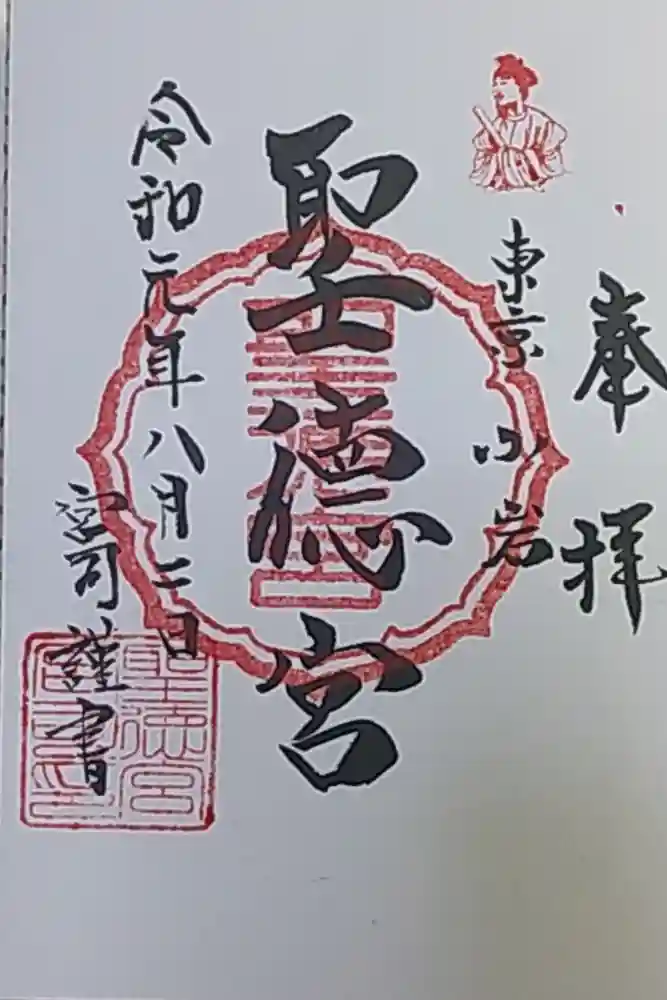 奉拝
東京 小岩
聖徳宮
令和元年八月二日
宮司謹書
聖徳宮